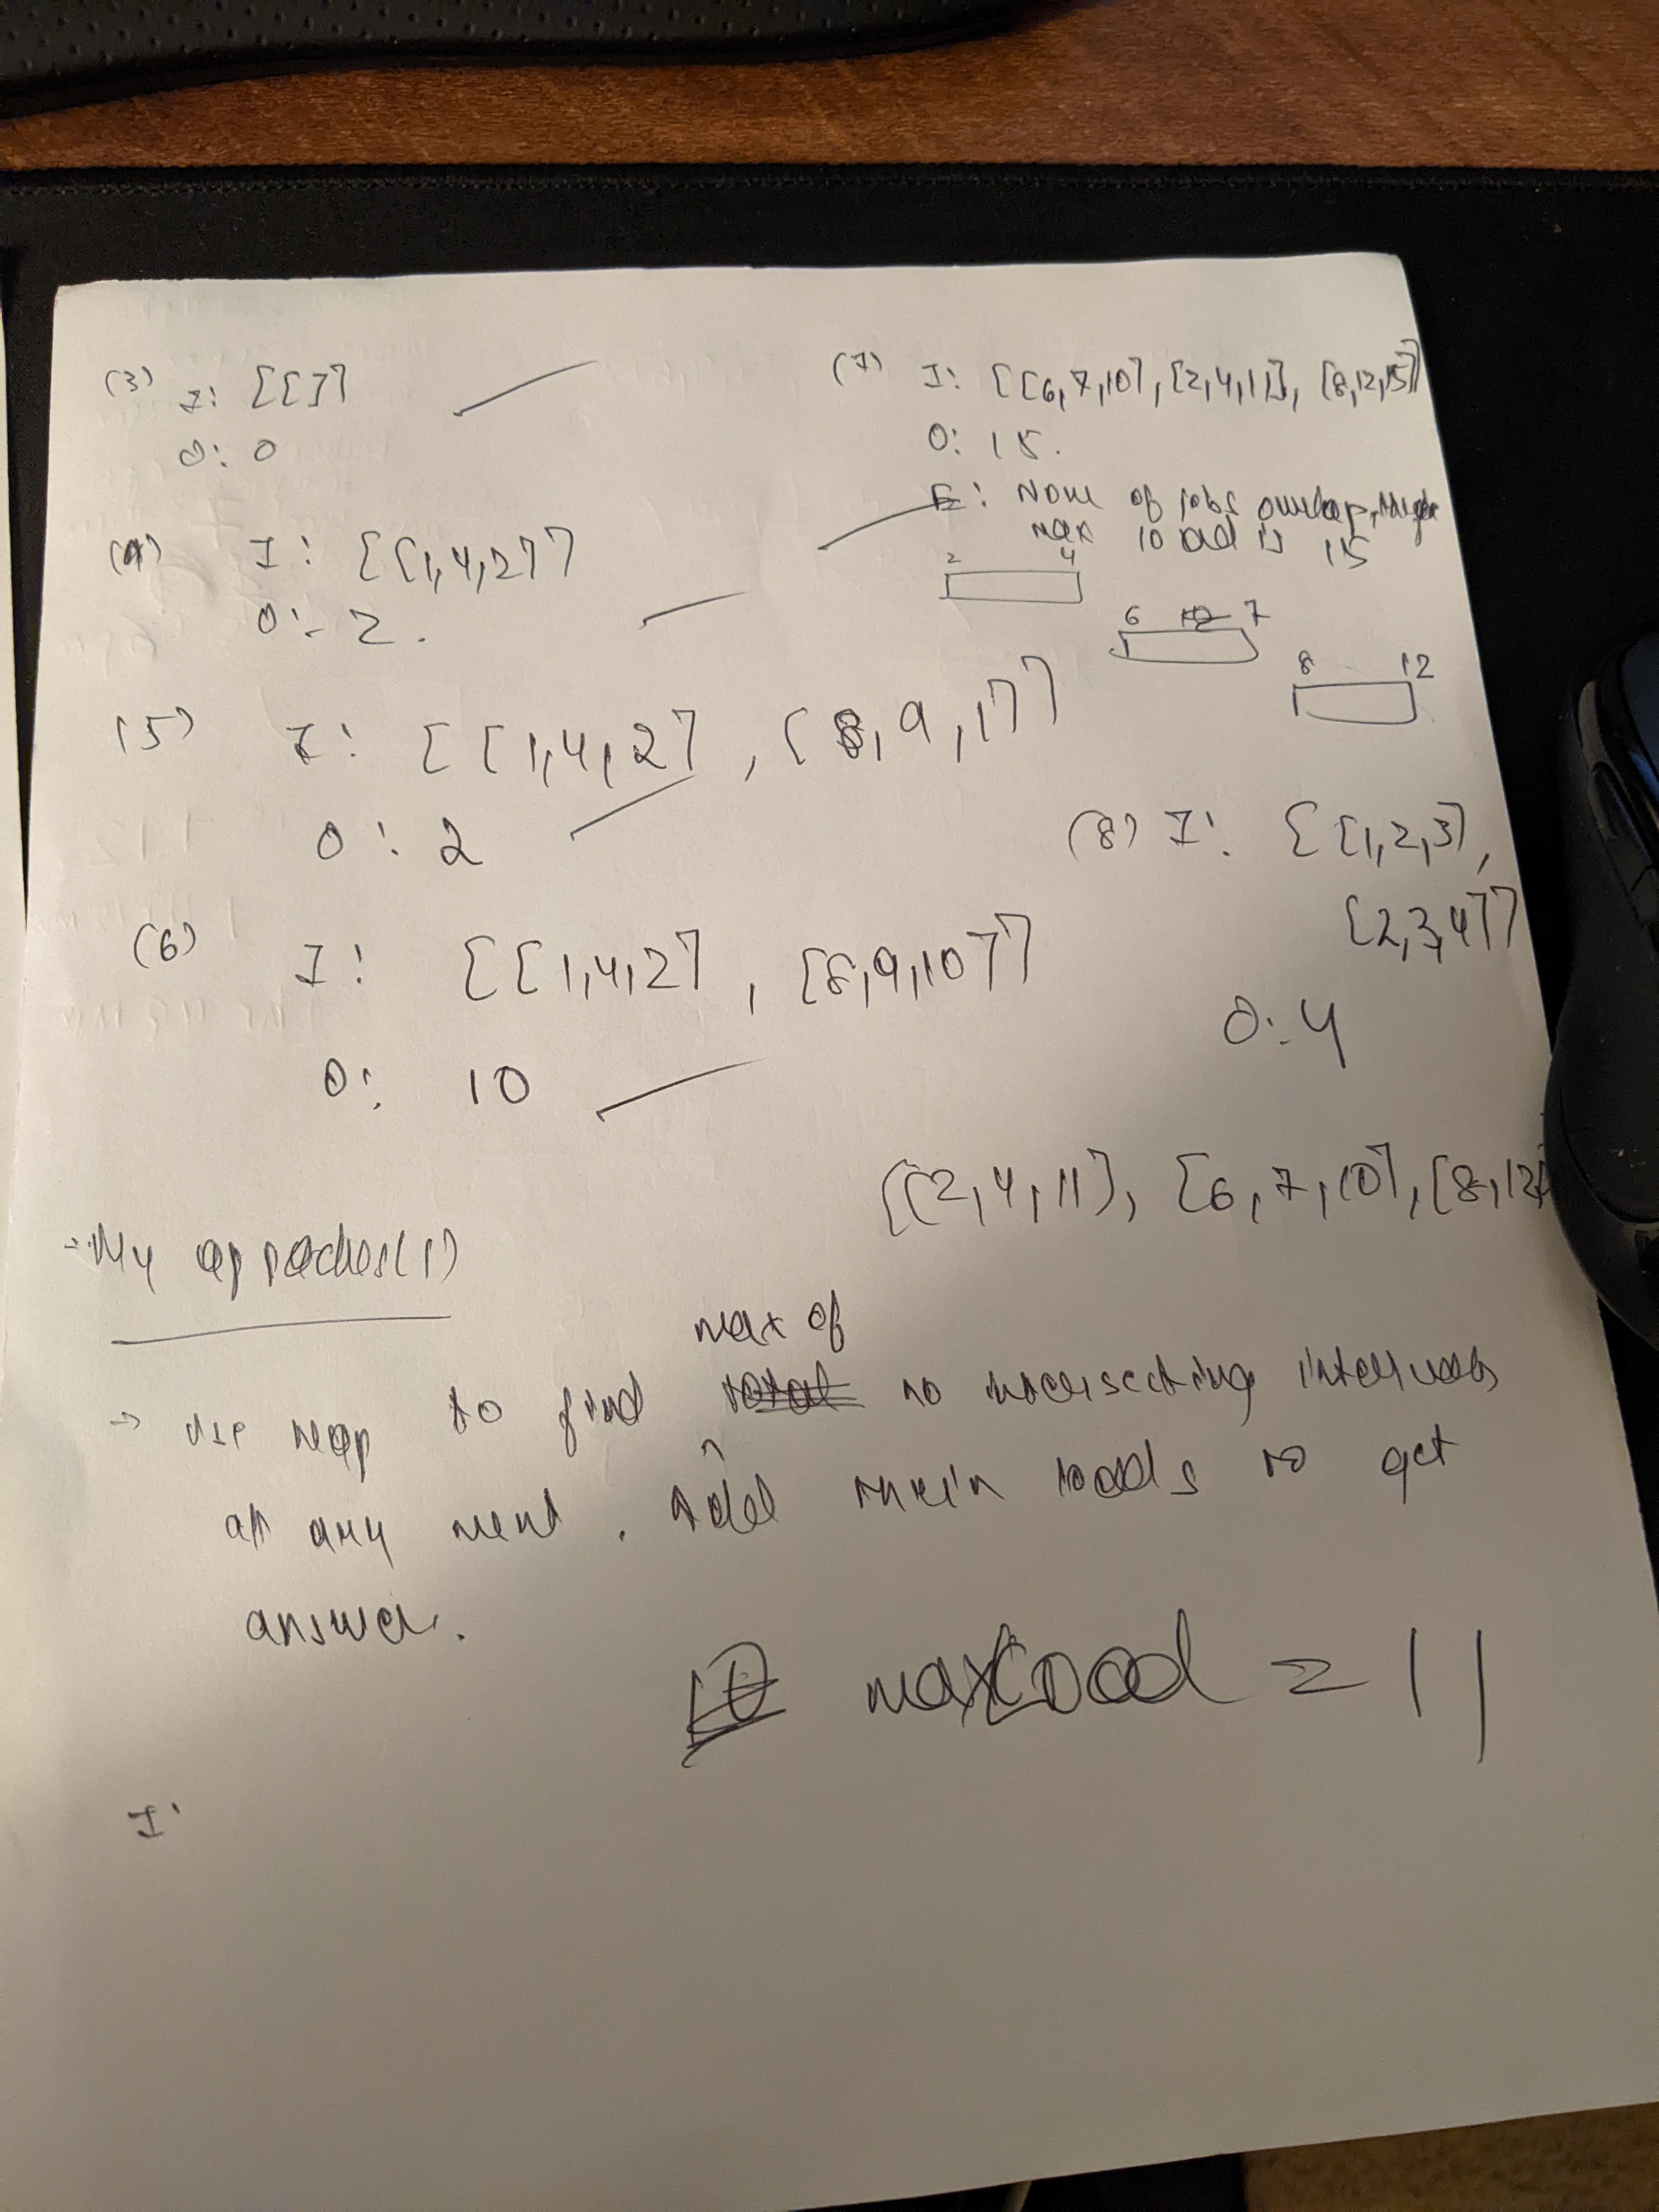 (3) I: [[]]
O: 0
(4) I: [[1,4,2]]
O:- 2.
(5) I: [[1,4,2], [8,9,1]]
O: 2
(6) I: [[1,4,2], [8,9,10]]
O: 10
(7) I: [[6,7,10], [2,4,11], [8,12,15]]
O: 15.
E: None of jobs overlap,
max load is 15
2 4
6 7
8 12
(8) I: [[1,2,3],
[2,3,4]]
O: 4
[[2,4,11], [6,7,10], [8,12
My approaches(1)
max of
→ use heap to find total no intersecting intervals
at any . Add their loads to get
answer.
maxLoad = 11
I: